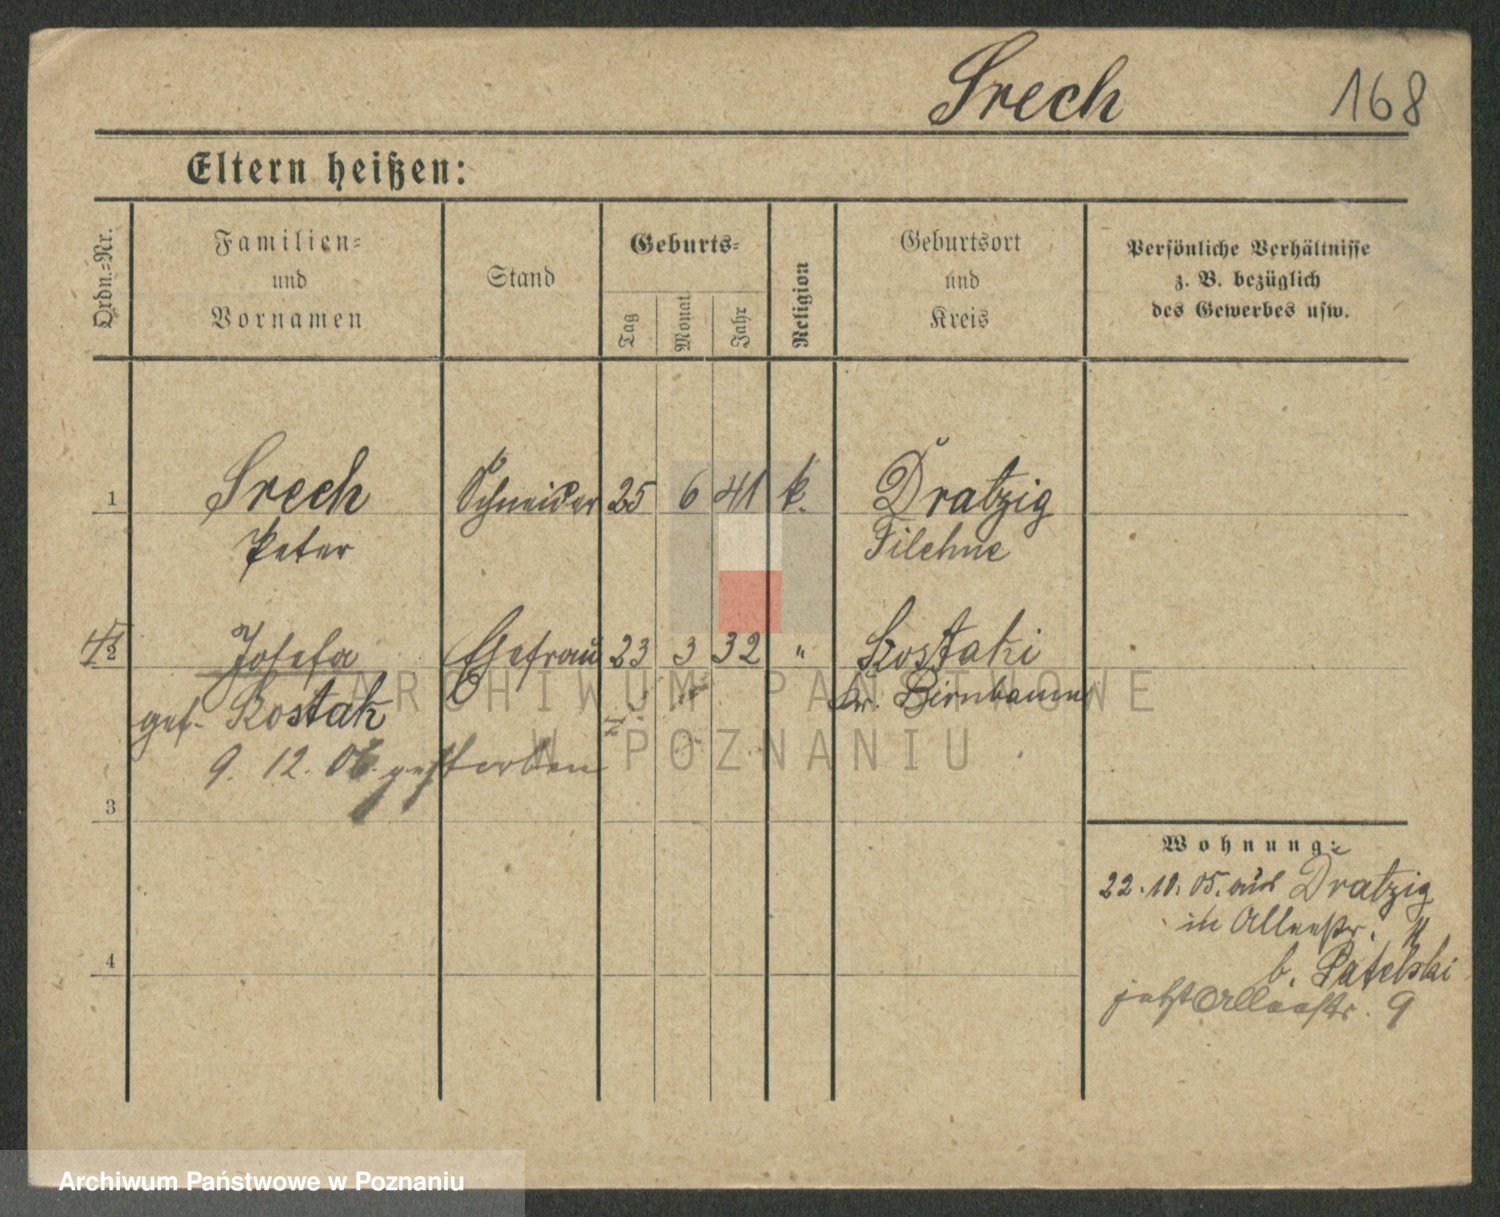 Srech 168
Eltern heißen:
Ordn.=Nr.
Familien=
und
Vornamen
Stand
Geburts=
Tag
Monat
Jahr
Religion
Geburtsort
und
Kreis
Persönliche Verhältnisse
z. B. bezüglich
des Gewerbes usw.
1 Srech Schneider 25 6 41 k. Dratzig
Peter Filehne
2 Josefa Ehefrau 23 3 32 " Kostaki
geb. Kostak Kr. Birnbaum
9. 12. 06. gestorben
3
4
Wohnung:
22. 10. 05. aus Dratzig
in Alleestr.
b. Patelski
jetzt Alleestr. 9
ARCHIWUM PAŃSTWOWE
W POZNANIU
Archiwum Państwowe w Poznaniu